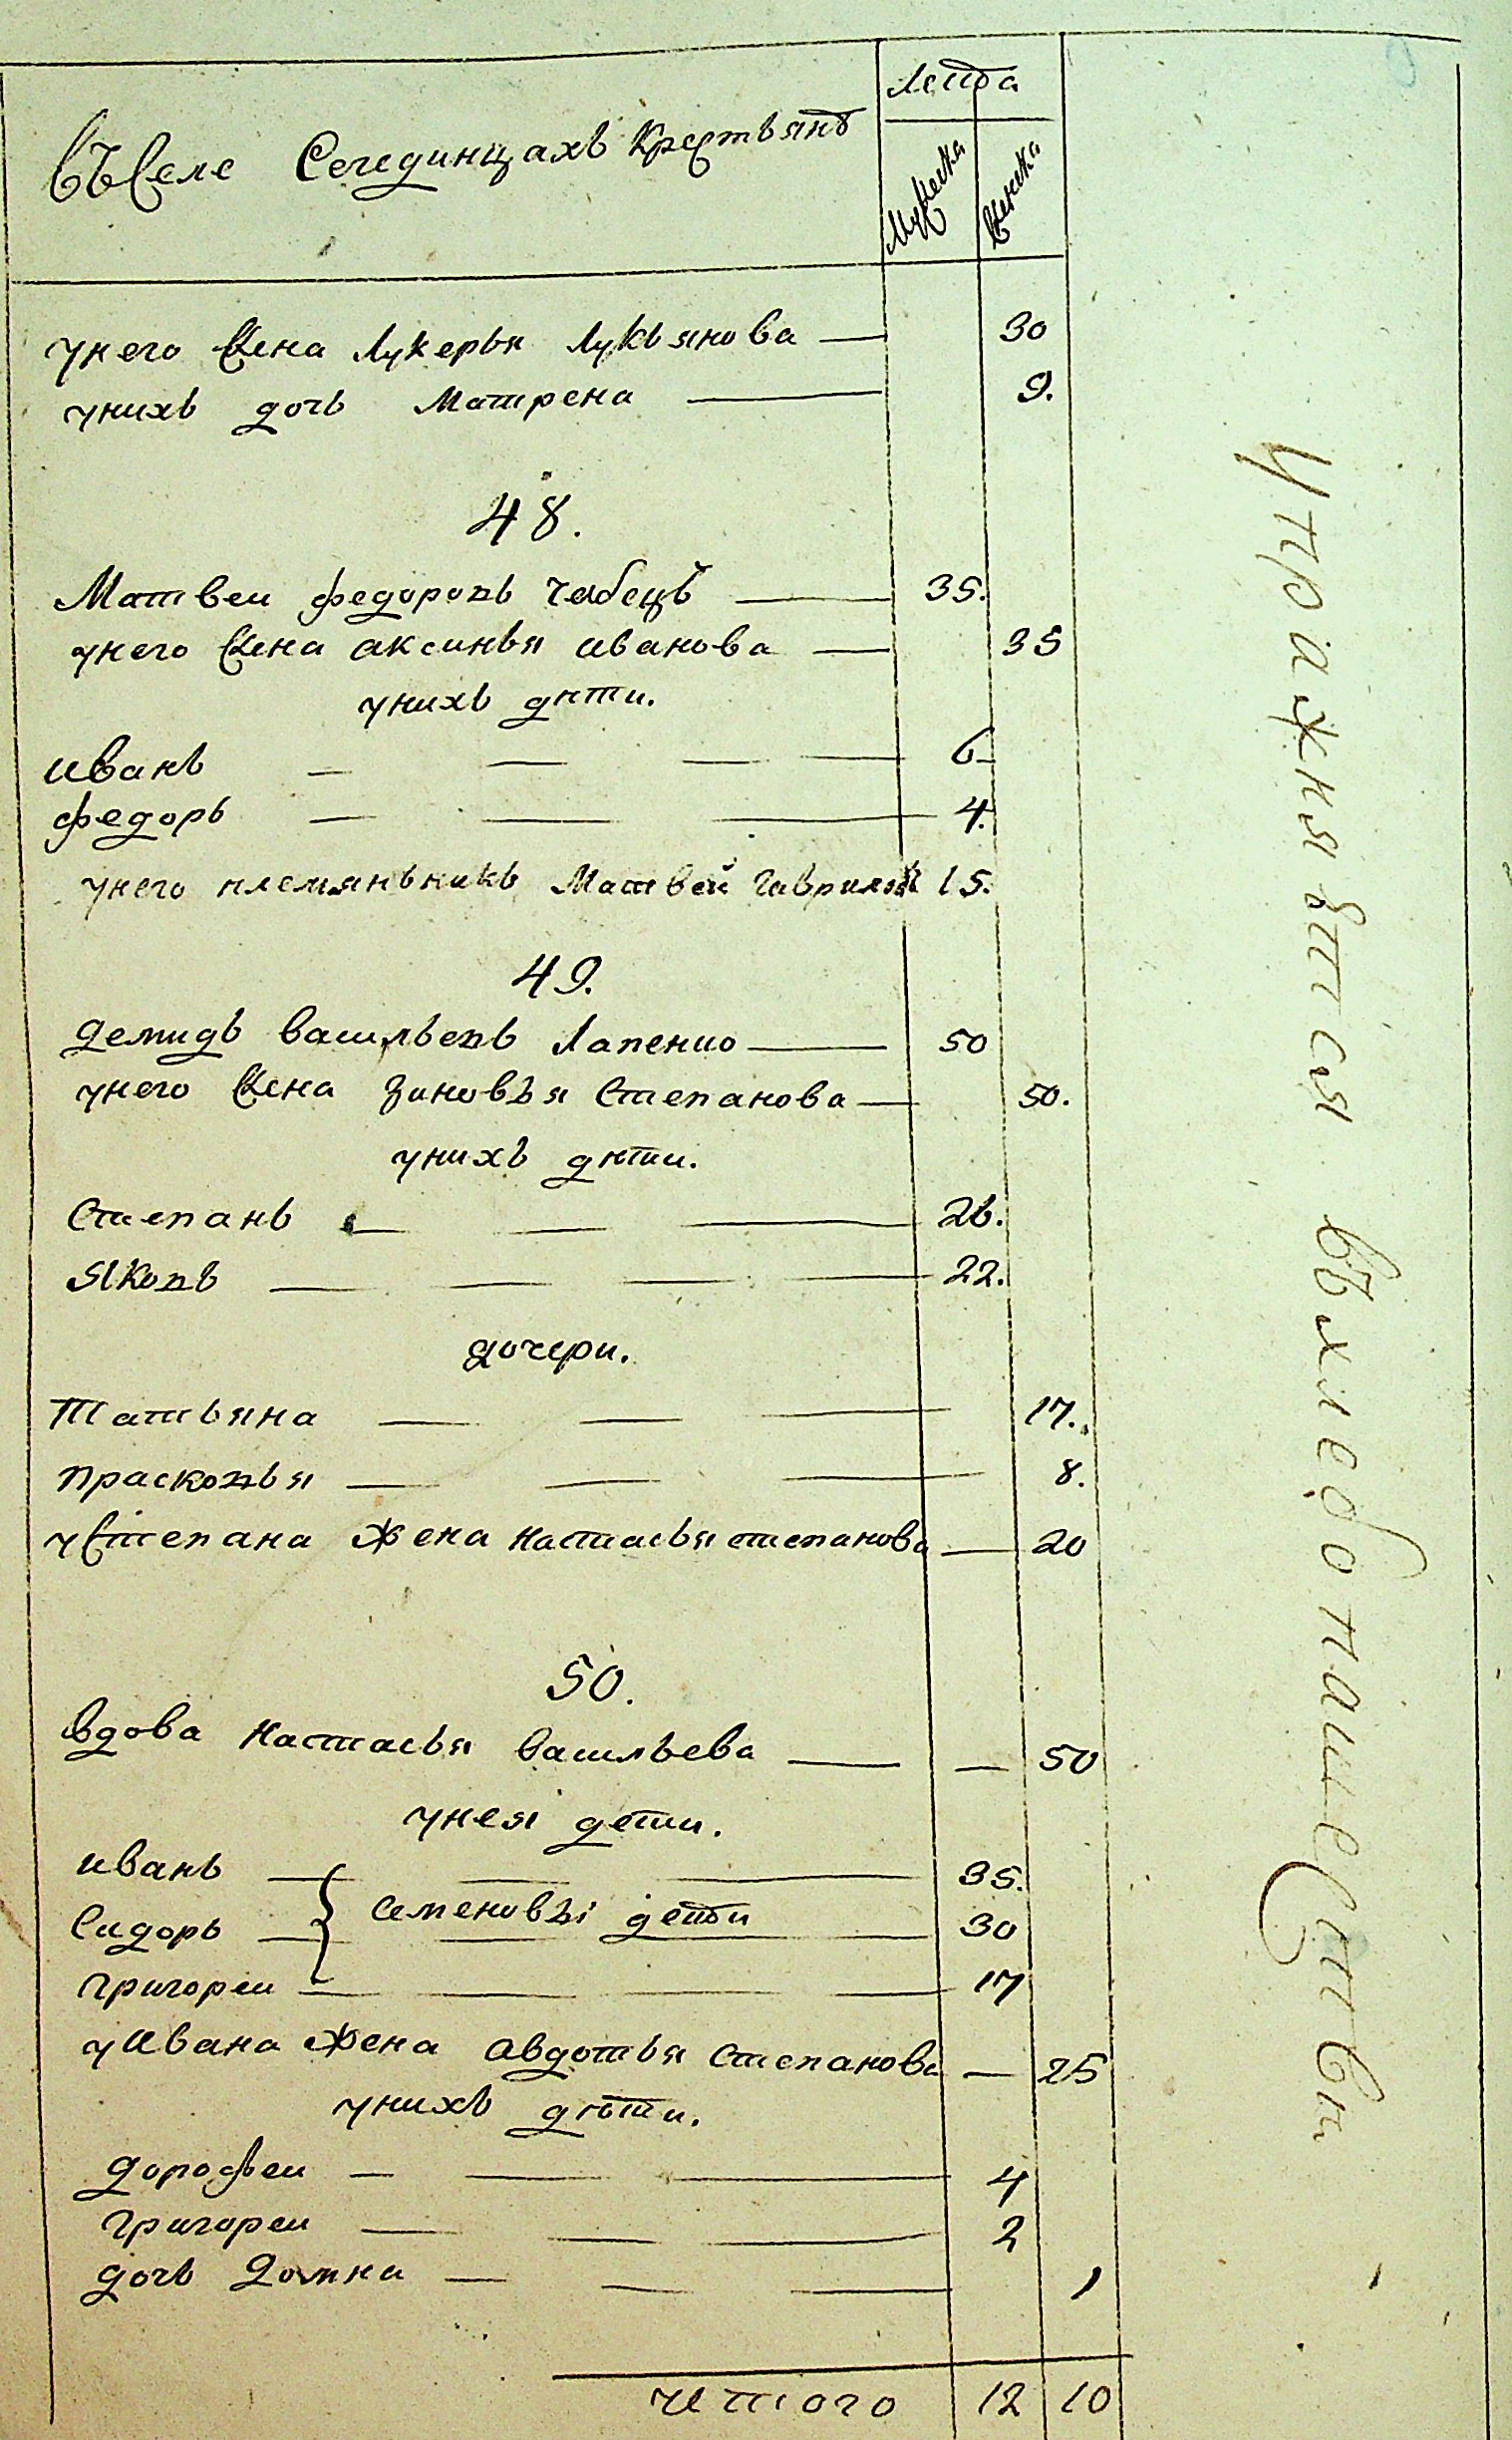 лета
въ Селе Сечединцахъ Крестьянъ
мужеска
женска
унего жена Лукерья Лукьянова — 30
унихъ дочь Матрена — 9.
48.
Матвеи федоровъ чабецъ — 35.
унего жена аксинья иванова — 35
унихъ дѣти.
иванъ — — — — 6
федоръ — — — 4.
унего племяньникъ Матвей гаврилов 15.
49.
демидъ васильевъ Лапенио — 50
унего жена зиновъя Степанова — 50.
унихъ дѣти.
Степанъ — — — 26.
Яковъ — — — — 22.
дочери.
Татьяна — — — 17.
прасковья — — — 8.
уСтепана жена настасья степанова — 20
50.
вдова настасья васильева — — 50
унея дети.
иванъ — — — 35.
Семеновы дети
Сидоръ — — — 30
григореи — — — — 17
уивана жена авдотья степанова — 25
унихъ дѣти.
дорофеи — — — 4
григореи — — — 2
дочь домна — — — 1
итого 12 10
упражняются въхлебопашественны